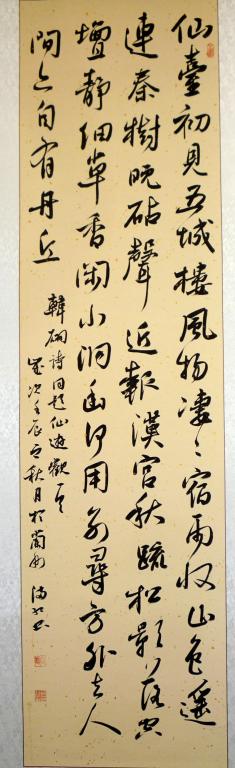 仙臺初見五城樓風物淒〻宿雨收山色遥
連秦樹晚砧聲近報漢宮秋疏松影落空
壇靜细草香闲小洞幽何用别尋方外去人
間亦自有丹丘
韓翃詩同题仙遊觀一首
歲次壬辰之秋月於蘭州 书